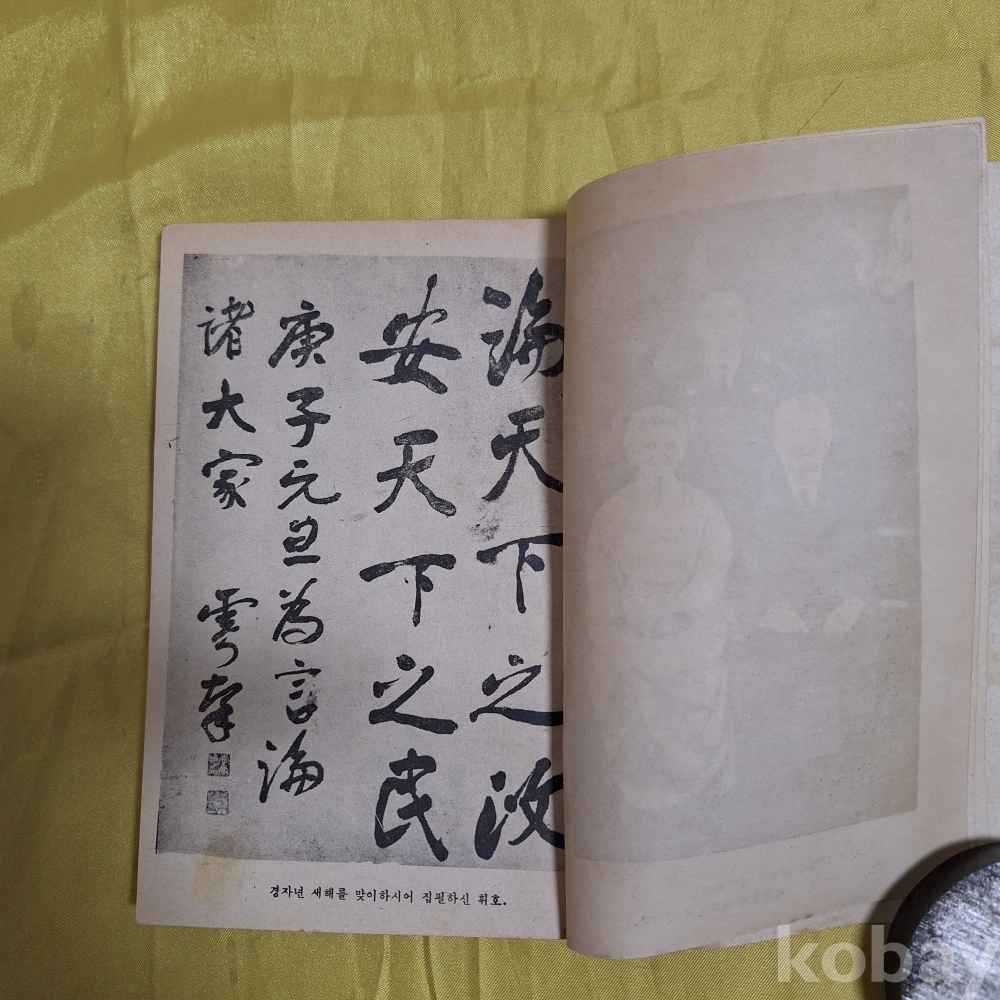 論天下之政
安天下之民
庚子元旦為言論
諸大家 雩南
경자년 새해를 맞이하시어 집필하신 휘호.
kobay